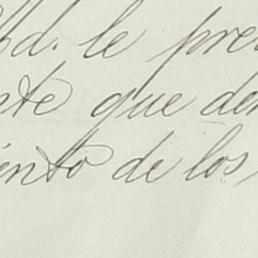 Vd. le pre
nte que de
ento de los